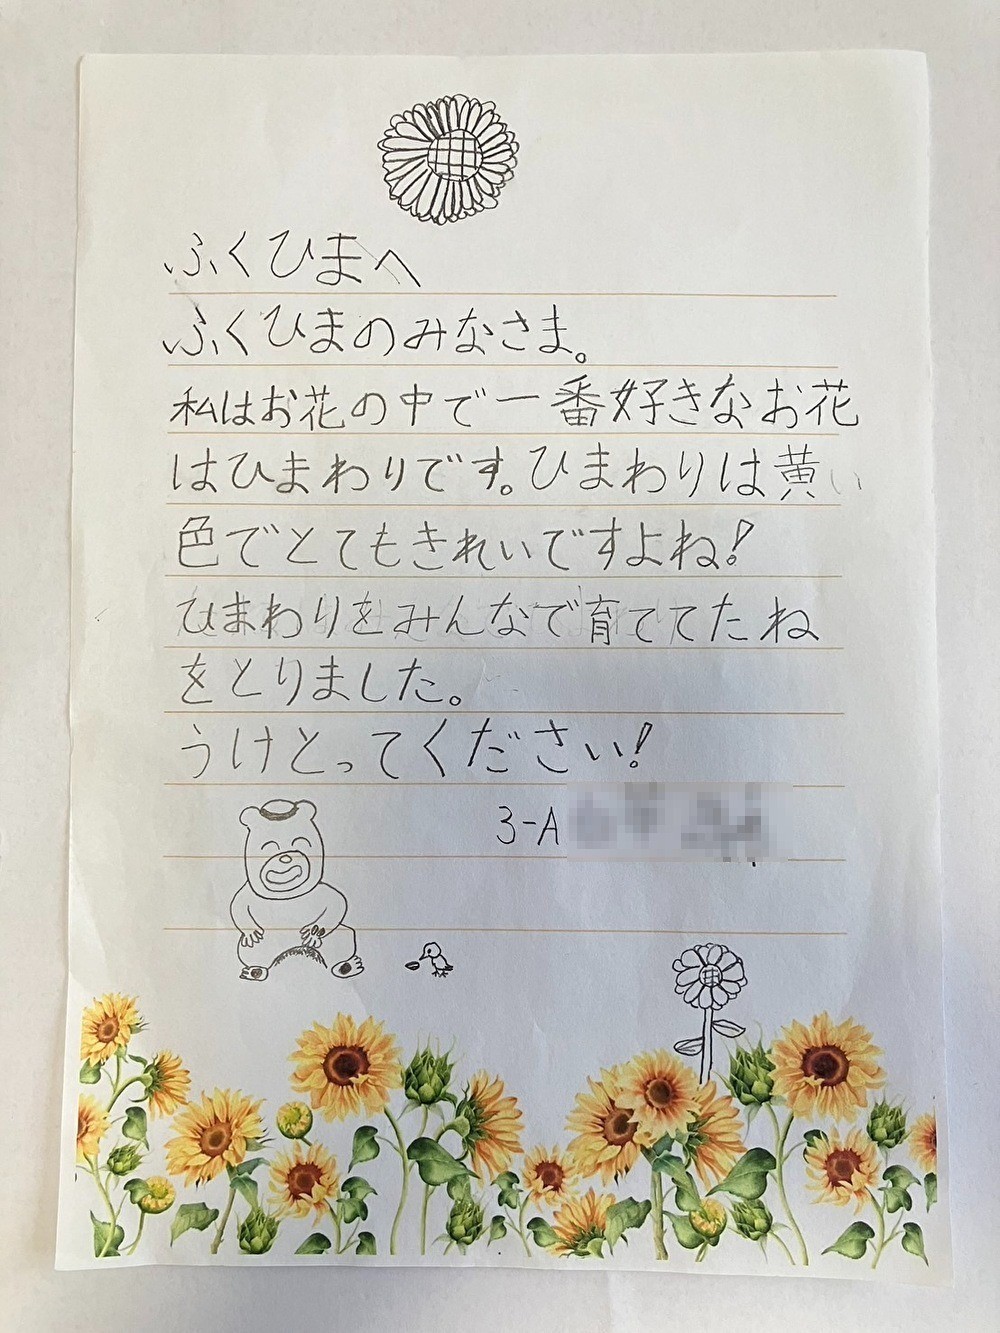 ふくひまへ
ふくひまのみなさま。
私はお花の中で一番好きなお花
はひまわりです。ひまわりは黄い
色でとてもきれいですよね!
ひまわりをみんなで育ててたね
をとりました。
うけとってください!
3-A